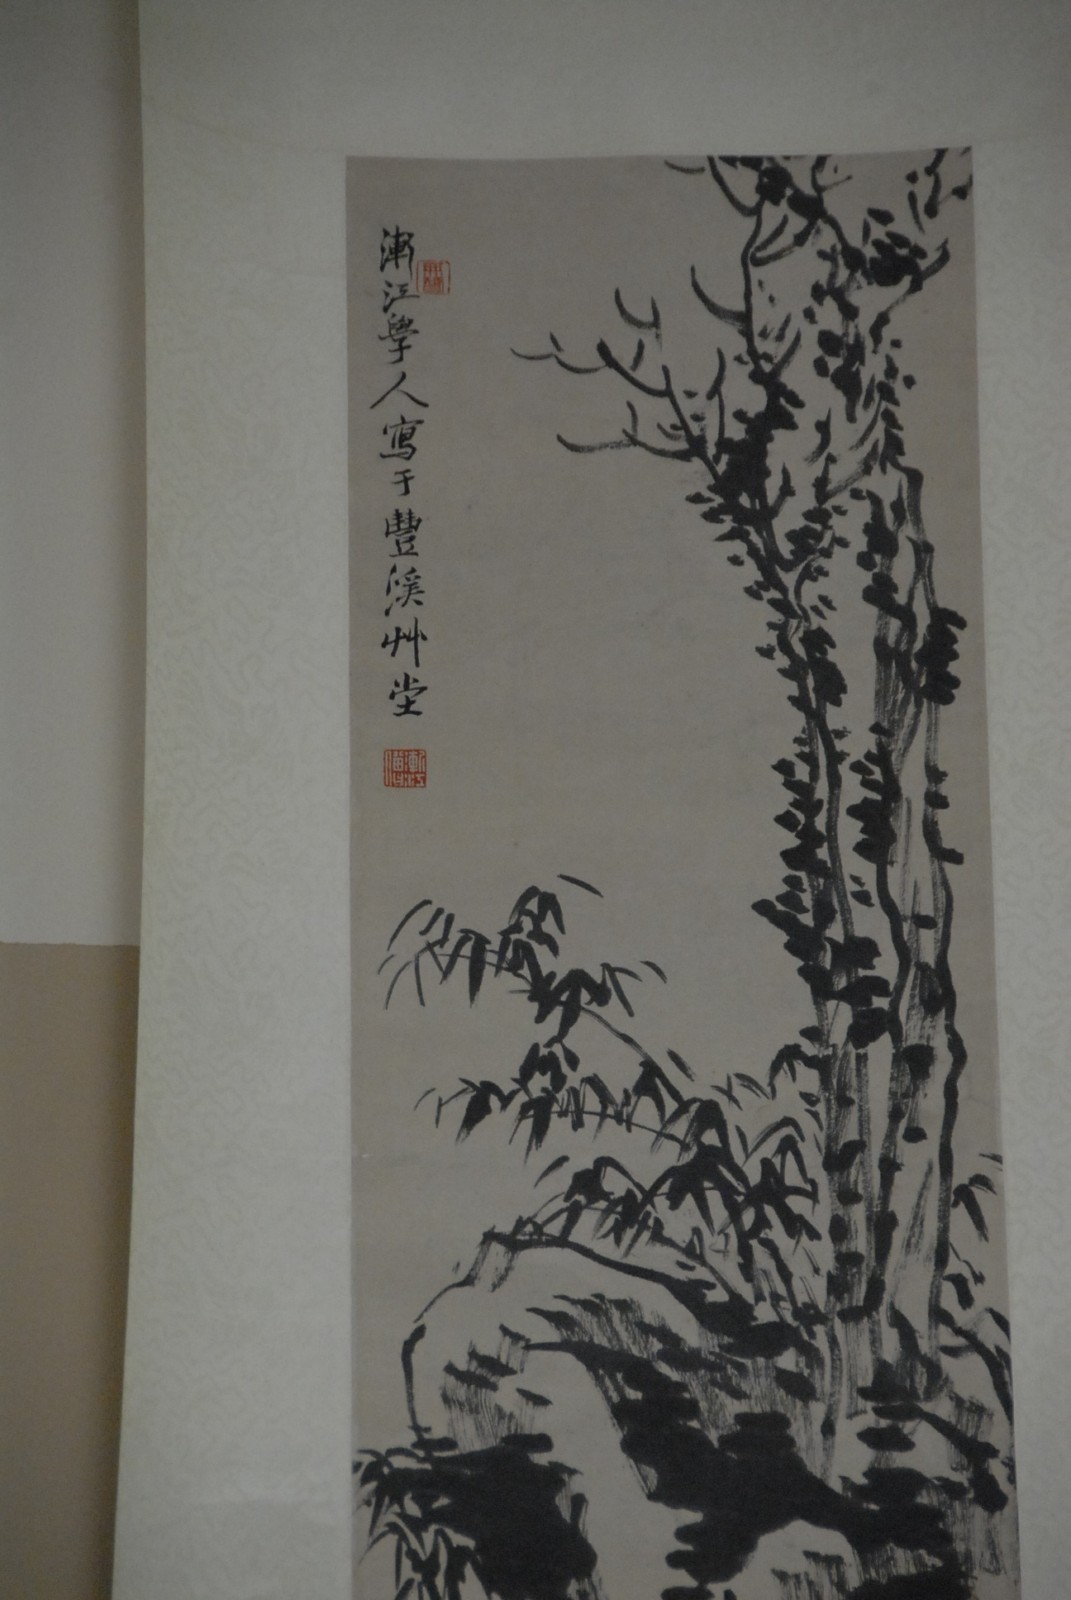 浙江學人寫于豐溪艸堂